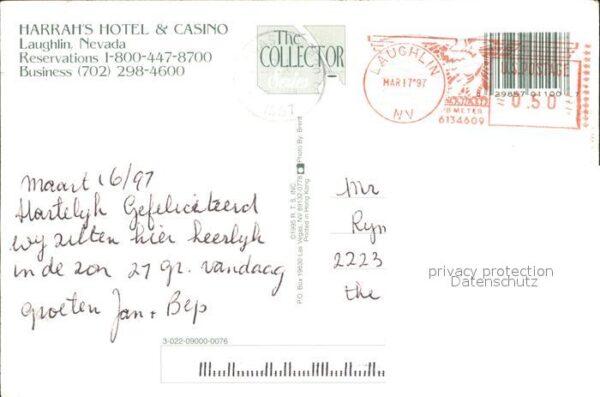 HARRAH'S HOTEL & CASINO
Laughlin, Nevada
Reservations 1-800-447-8700
Business (702) 298-4600
The
COLLECTOR
Series
LAUGHLIN
MAR 17 '97
NV
U.S. POSTAGE
29857 01100 7
0.50
PB METER
6134609
Maart 16/97
Hartelijk Gefeliciteerd
wij zitten hier heerlijk
in de zon 27 gr. vandaag
groeten Jan + Bep
©1995 R.T.S. INC.
P.O. Box 19630 Las Vegas, NV 89132-0778
Printed in Hong Kong
Photo By: Brent
Mr
Ryn
2223
the
privacy protection
Datenschutz
3-022-09000-0076